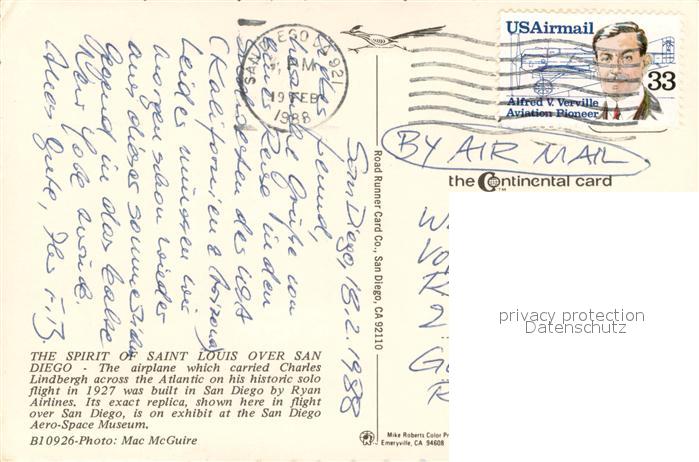 SAN DIEGO CA 921
PM
19 FEB
1988
USAirmail
33
Alfred V. Verville
Aviation Pioneer
BY AIR MAIL
the Continental card
San Diego, 18.2.1988
Lieber Freund,
herzliche Grüße von
einer Reise in den
Südwesten der USA
(Kalifornien & Arizona)
Leider müssen wir
morgen schon wieder
aus dieser sonnendurch
Gegend in das kalte
New York zurück.
Alles Gute, Ihr
THE SPIRIT OF SAINT LOUIS OVER SAN
DIEGO - The airplane which carried Charles
Lindbergh across the Atlantic on his historic solo
flight in 1927 was built in San Diego by Ryan
Airlines. Its exact replica, shown here in flight
over San Diego, is on exhibit at the San Diego
Aero-Space Museum.
B10926-Photo: Mac McGuire
Road Runner Card Co., San Diego, CA 92110
Mike Roberts Color Pr
Emeryville, CA 94608
privacy protection
Datenschutz